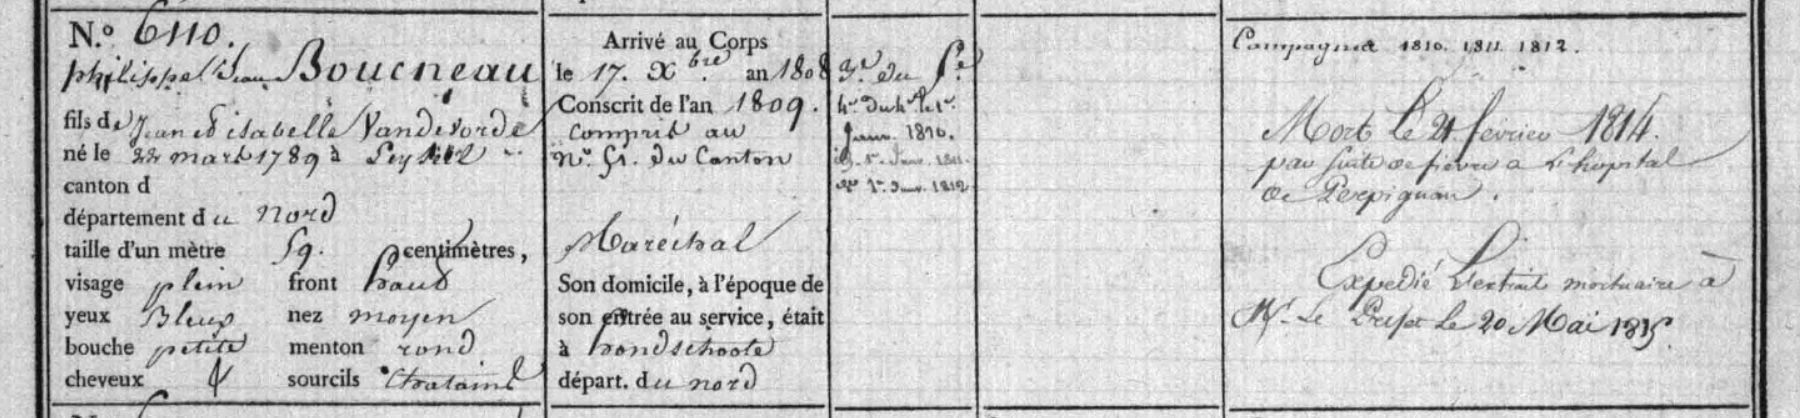 N.º 6110.
philippe Jean Boucneau
fils de Jean et isabelle Vandevorde
né le 22 mars 1789 à
canton d
département du nord
taille d'un mètre 59. centimètres,
visage plein front haut
yeux Bleus nez moyen
bouche petite menton rond
cheveux & sourcils Chatains
Arrivé au Corps
le 17. Xbre. an 1808
Conscrit de l'an 1809.
compris au
Nº. 51. du Canton
Maréchal
Son domicile, à l'époque de
son entrée au service, était
à hondschoote
départ. du nord
3e. du
Janv. 1810.
1r. Janv. 1811.
1r. Janv. 1812
Campagnes 1810. 1811. 1812.
Mort Le 21 février 1814.
par suite de fievre a L'hopital
de Perpignan.
Expedié L'extrait mortuaire à
Mr. Le Prefet Le 20 Mai 1815.